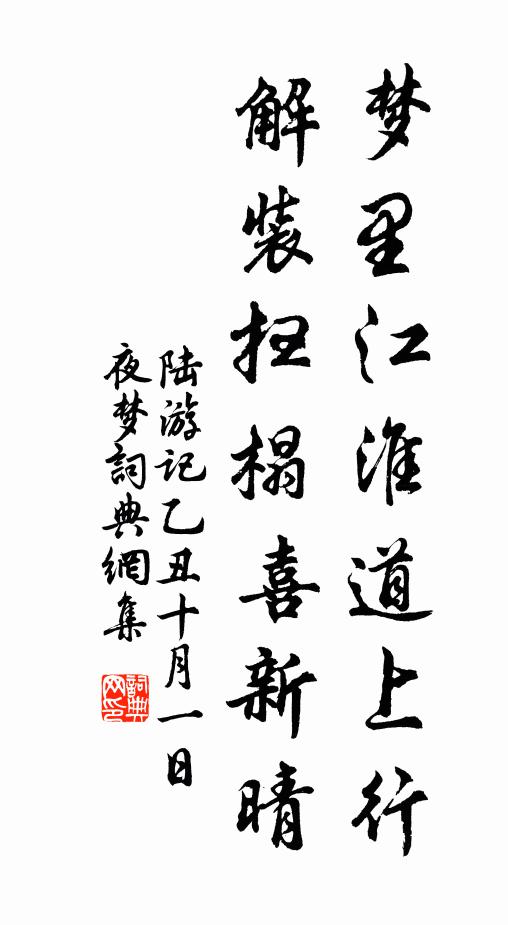 梦里江淮道上行
解装扫榻喜新晴
陆游记乙丑十月一日
夜梦詞典網集
詞典网印